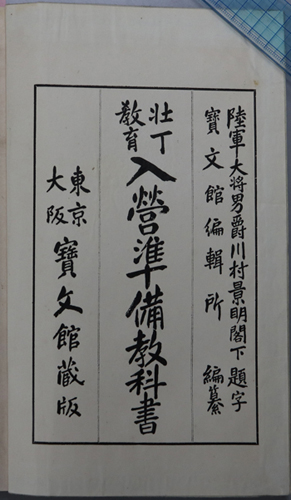 陸軍大将男爵川村景明閣下題字
寶文館編輯所 編纂
壮丁教育 入營準備教科書
東京 大阪 寶文館蔵版